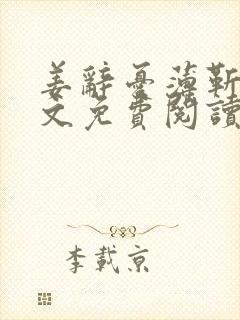 姜辭憂薄靳
文免費閱讀
李載京